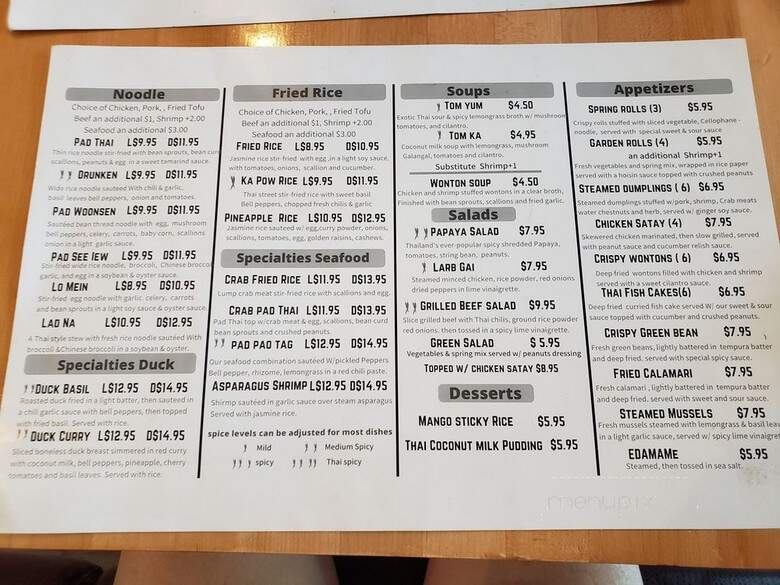 Noodle
Choice of Chicken, Pork, , Fried Tofu
Beef an additional $1, Shrimp +2.00
Seafood an additional $3.00
PAD THAI L$9.95 D$11.95
Thin rice noodle stir-fried with bean sprouts, bean curd
scallions, peanuts & egg in a sweet tamarind sauce.
DRUNKEN L$9.95 D$11.95
Wide rice noodle sauteed With chili & garlic,
basil leaves bell peppers, onion and tomatoes.
PAD WOONSEN L$9.95 D$11.95
Sautéed bean thread noodle with egg, mushroom
bell peppers, celery, carrots, baby corn, scallions
onion in a light garlic sauce.
PAD SEE IEW L$9.95 D$11.95
Stir-fried wide rice noodle, broccoli, Chinese broccoli
garlic, and egg in a soybean & oyster sauce.
LO MEIN L$8.95 D$10.95
Stir-fried egg noodle with garlic, celery, carrots
and bean sprouts in a light soy sauce & oyster sauce.
LAD NA L$10.95 D$12.95
A Thai style stew with fresh rice noodle sautéed With
broccoli &Chinese broccoli in a soybean & oyster.
Specialties Duck
DUCK BASIL L$12.95 D$14.95
Roasted duck fried in a light batter, then sauteed in
a chili garlic sauce with bell peppers, then topped
with fried basil. Served with rice.
DUCK CURRY L$12.95 D$14.95
Sliced boneless duck breast simmered in red curry
with coconut milk, bell peppers, pineapple, cherry
tomatoes and basil leaves. Served with rice.
Fried Rice
Choice of Chicken, Pork, , Fried Tofu
Beef an additional $1, Shrimp +2.00
Seafood an additional $3.00
FRIED RICE L$8.95 D$10.95
Jasmine rice stir-fried with egg ,in a light soy sauce.
with tomatoes, onions, scallion and cucumber.
KA POW RICE L$9.95 D$11.95
Thai street stir-fried rice with sweet basil
Bell peppers, chopped fresh chilis & garlic
PINEAPPLE RICE L$10.95 D$12.95
Jasmine rice sautéed w/ egg,curry powder, onions,
scallions, tomatoes, egg, golden raisins, cashews.
Specialties Seafood
CRAB FRIED RICE L$11.95 D$13.95
Lump crab meat stir-fried rice with scallions and egg.
CRAB PAD THAI L$11.95 D$13.95
Pad Thai top w/crab meat & egg, scallions, bean curd
bean sprouts and crushed peanuts.
PAD PAD TAG L$12.95 D$14.95
Our seafood combination sautéed W/pickled Peppers
Bell pepper, rhizome, lemongrass in a red chili paste.
ASPARAGUS SHRIMP L$12.95 D$14.95
Shrimp sautéed in garlic sauce over steam asparagus
Served with jasmine rice.
spice levels can be adjusted for most dishes
Mild Medium Spicy
spicy Thai spicy
Soups
TOM YUM $4.50
Exotic Thai sour & spicy lemongrass broth w/ mushroom
tomatoes, and cilantro.
TOM KA $4.95
Coconut milk soup with lemongrass, mushroom
Galangal, tomatoes and cilantro.
Substitute Shrimp+1
WONTON SOUP $4.50
Chicken and shrimp stuffed wontons in a clear broth,
Finished with bean sprouts, scallions and fried garlic.
Salads
PAPAYA SALAD $7.95
Thailand's ever-popular spicy shredded Papaya,
tomatoes, string bean, peanuts.
LARB GAI $7.95
Steamed minced chicken, rice powder, red onions
dried peppers in lime vinaigrette.
GRILLED BEEF SALAD $9.95
Slice grilled beef with Thai chilis, ground rice powder
red onions, then tossed in a spicy lime vinaigrette.
GREEN SALAD $ 5.95
Vegetables & spring mix served w/ peanuts dressing
TOPPED W/ CHICKEN SATAY $8.95
Desserts
MANGO STICKY RICE $5.95
THAI COCONUT MILK PUDDING $5.95
Appetizers
SPRING ROLLS (3) $5.95
Crispy rolls stuffed with sliced vegetable, Cellophane -
noodle, served with special sweet & sour sauce
GARDEN ROLLS (4) $5.95
an additional Shrimp+1
Fresh vegetables and spring mix, wrapped in rice paper
served with a hoisin sauce topped with crushed peanuts
STEAMED DUMPLINGS ( 6) $6.95
Steamed dumplings stuffed w/pork, shrimp, Crab meats
water chestnuts and herb, served w/ ginger soy sauce.
CHICKEN SATAY (4) $7.95
Skewered chicken marinated, then slow grilled, served
with peanut sauce and cucumber relish sauce.
CRISPY WONTONS ( 6) $6.95
Deep fried wontons filled with chicken and shrimp
served with a sweet cilantro sauce.
THAI FISH CAKES(6) $6.95
Deep fried curried fish cake served W/ our sweet & sour
sauce topped with cucumber and crushed peanuts.
CRISPY GREEN BEAN $7.95
Fresh green beans, lightly battered in tempura batter
and deep fried. served with special spicy sauce.
FRIED CALAMARI $7.95
Fresh calamari , lightly battered in tempura batter
and deep fried. served with sweet and sour sauce.
STEAMED MUSSELS $7.95
Fresh mussels steamed with lemongrass & basil leav
in a light garlic sauce, served w/ spicy lime vinaigret
EDAMAME $5.95
Steamed, then tossed in sea salt.
menupix